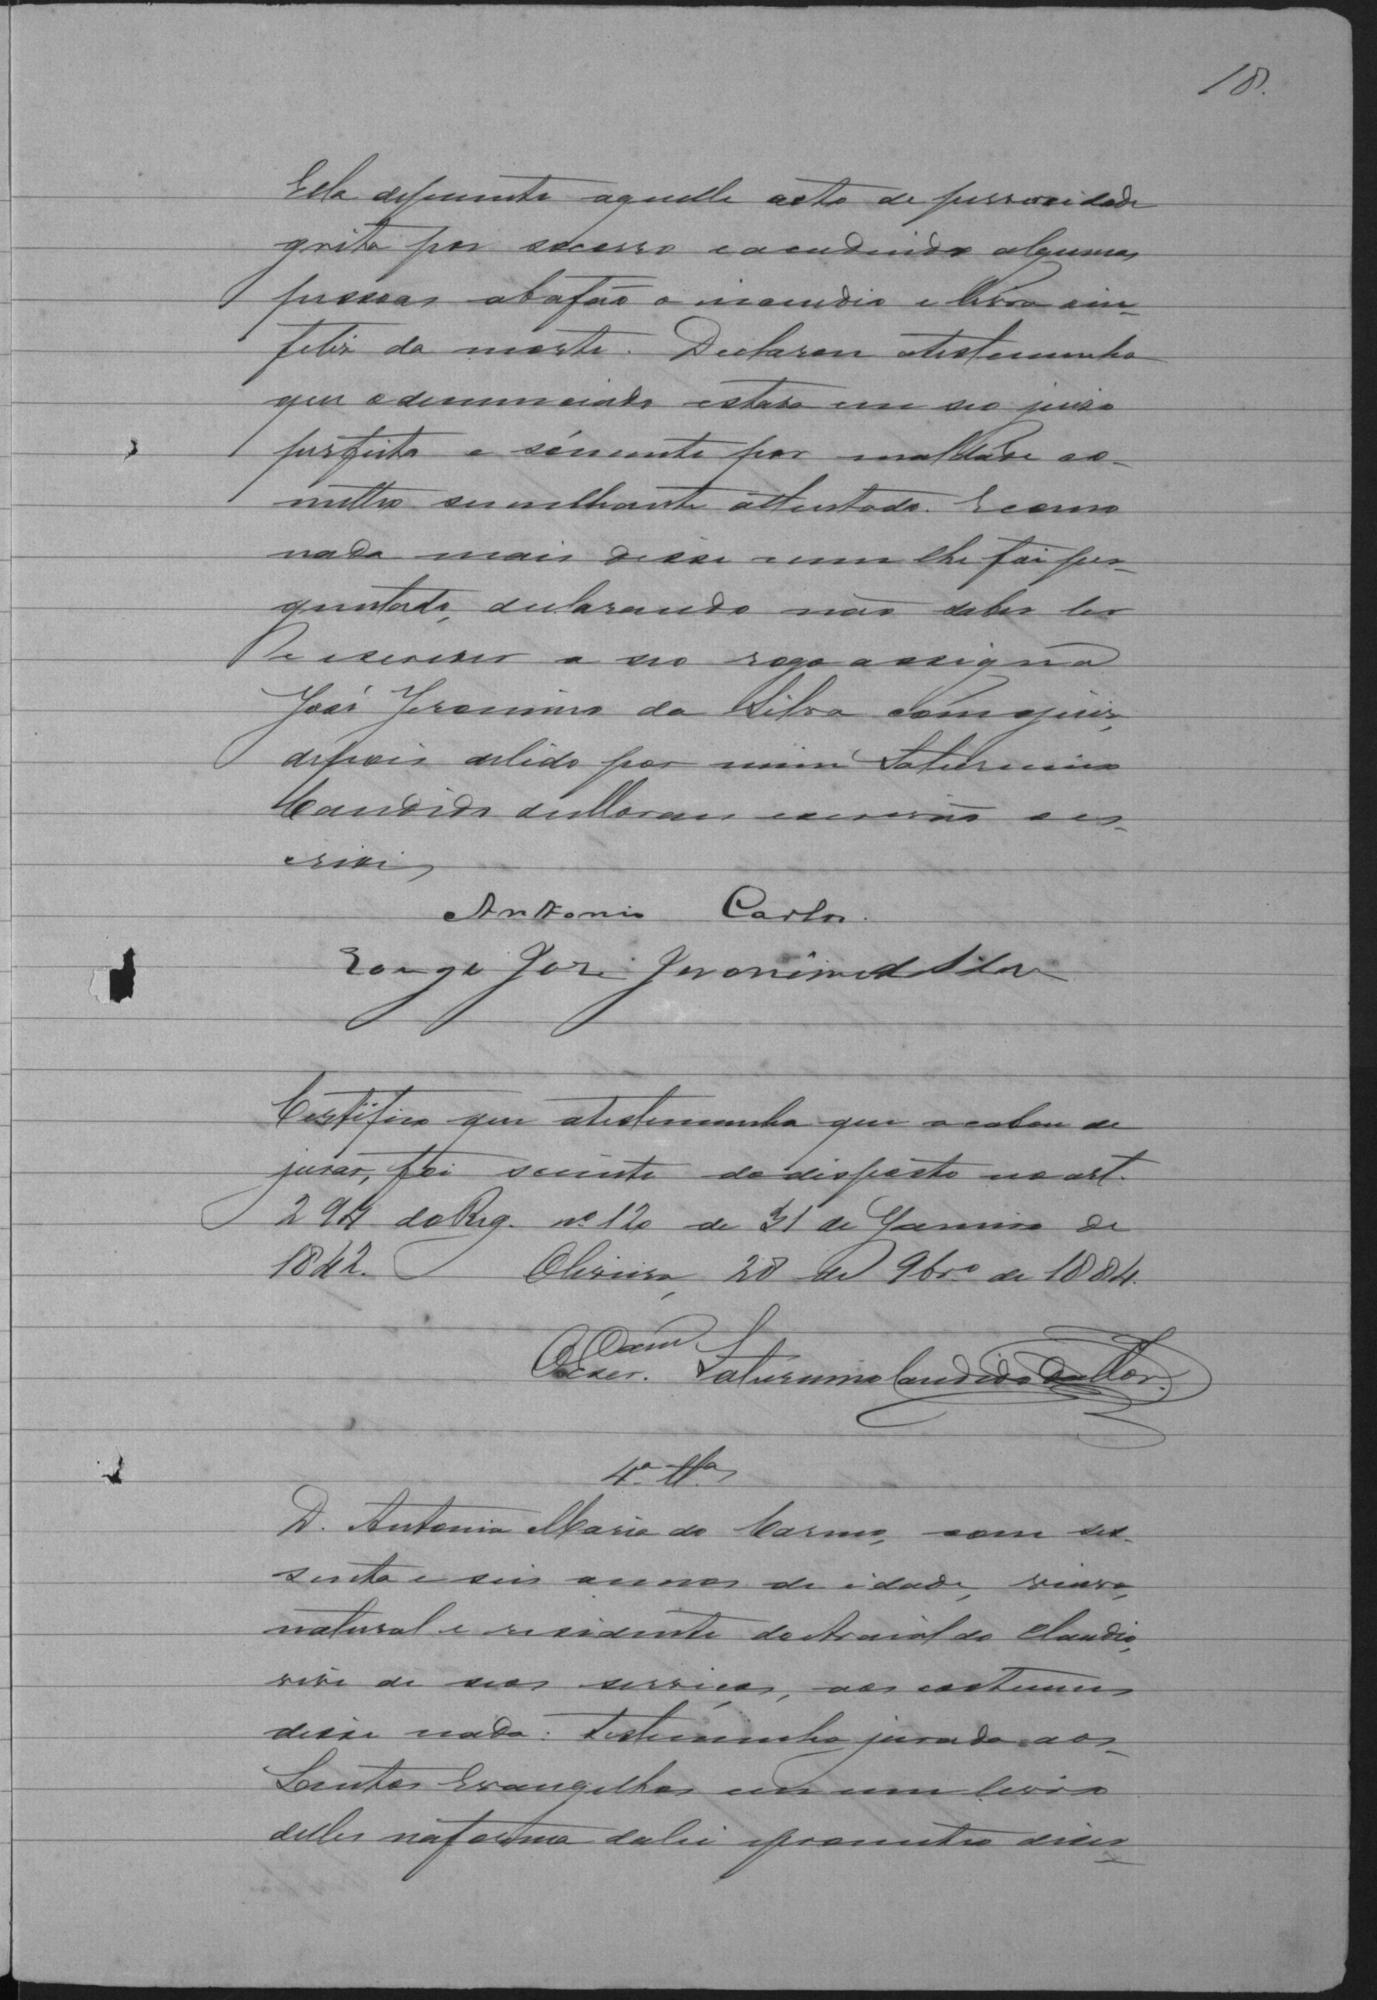 18.
Ella depoente aquelle acto de perversidade
grita por socorro e acudindo algumas
pessoas abafão o incendio e livra a in-
feliz da morte. Declarou a testemunha
que o denunciado estava em seo juizo
perfeito e sómente por maldade co-
metteo semelhante attentado. E como
nada mais disse nem lhe foi per-
guntado, declarando não saber ler
e escrever a seo rogo assigna
José Jeronimo da Silva com o juiz,
depois de lido por mim Saturnino
Candido escrivão o es-
crivi,
Antonio Carlos
E a rogo José Jeronimo d Silva
Certifico que a testemunha que acabou de
jurar, foi sciente do disposto no art.
294 do Reg. nº 120 de 31 de Janeiro de
1842. Oliveira, 28 de 9brº de 1884.
O Escr. Saturnino Candido
4ª Ttª
D. Antonia Maria do Carmo, com ses-
senta e seis annos de idade, viuva,
natural e residente do Arraial do Claudio,
vive de seos serviços, aos costumes
disse nada: testemunha jurada aos
Santos Evangelhos em um livro
delles na forma da lei e prometteo dizer